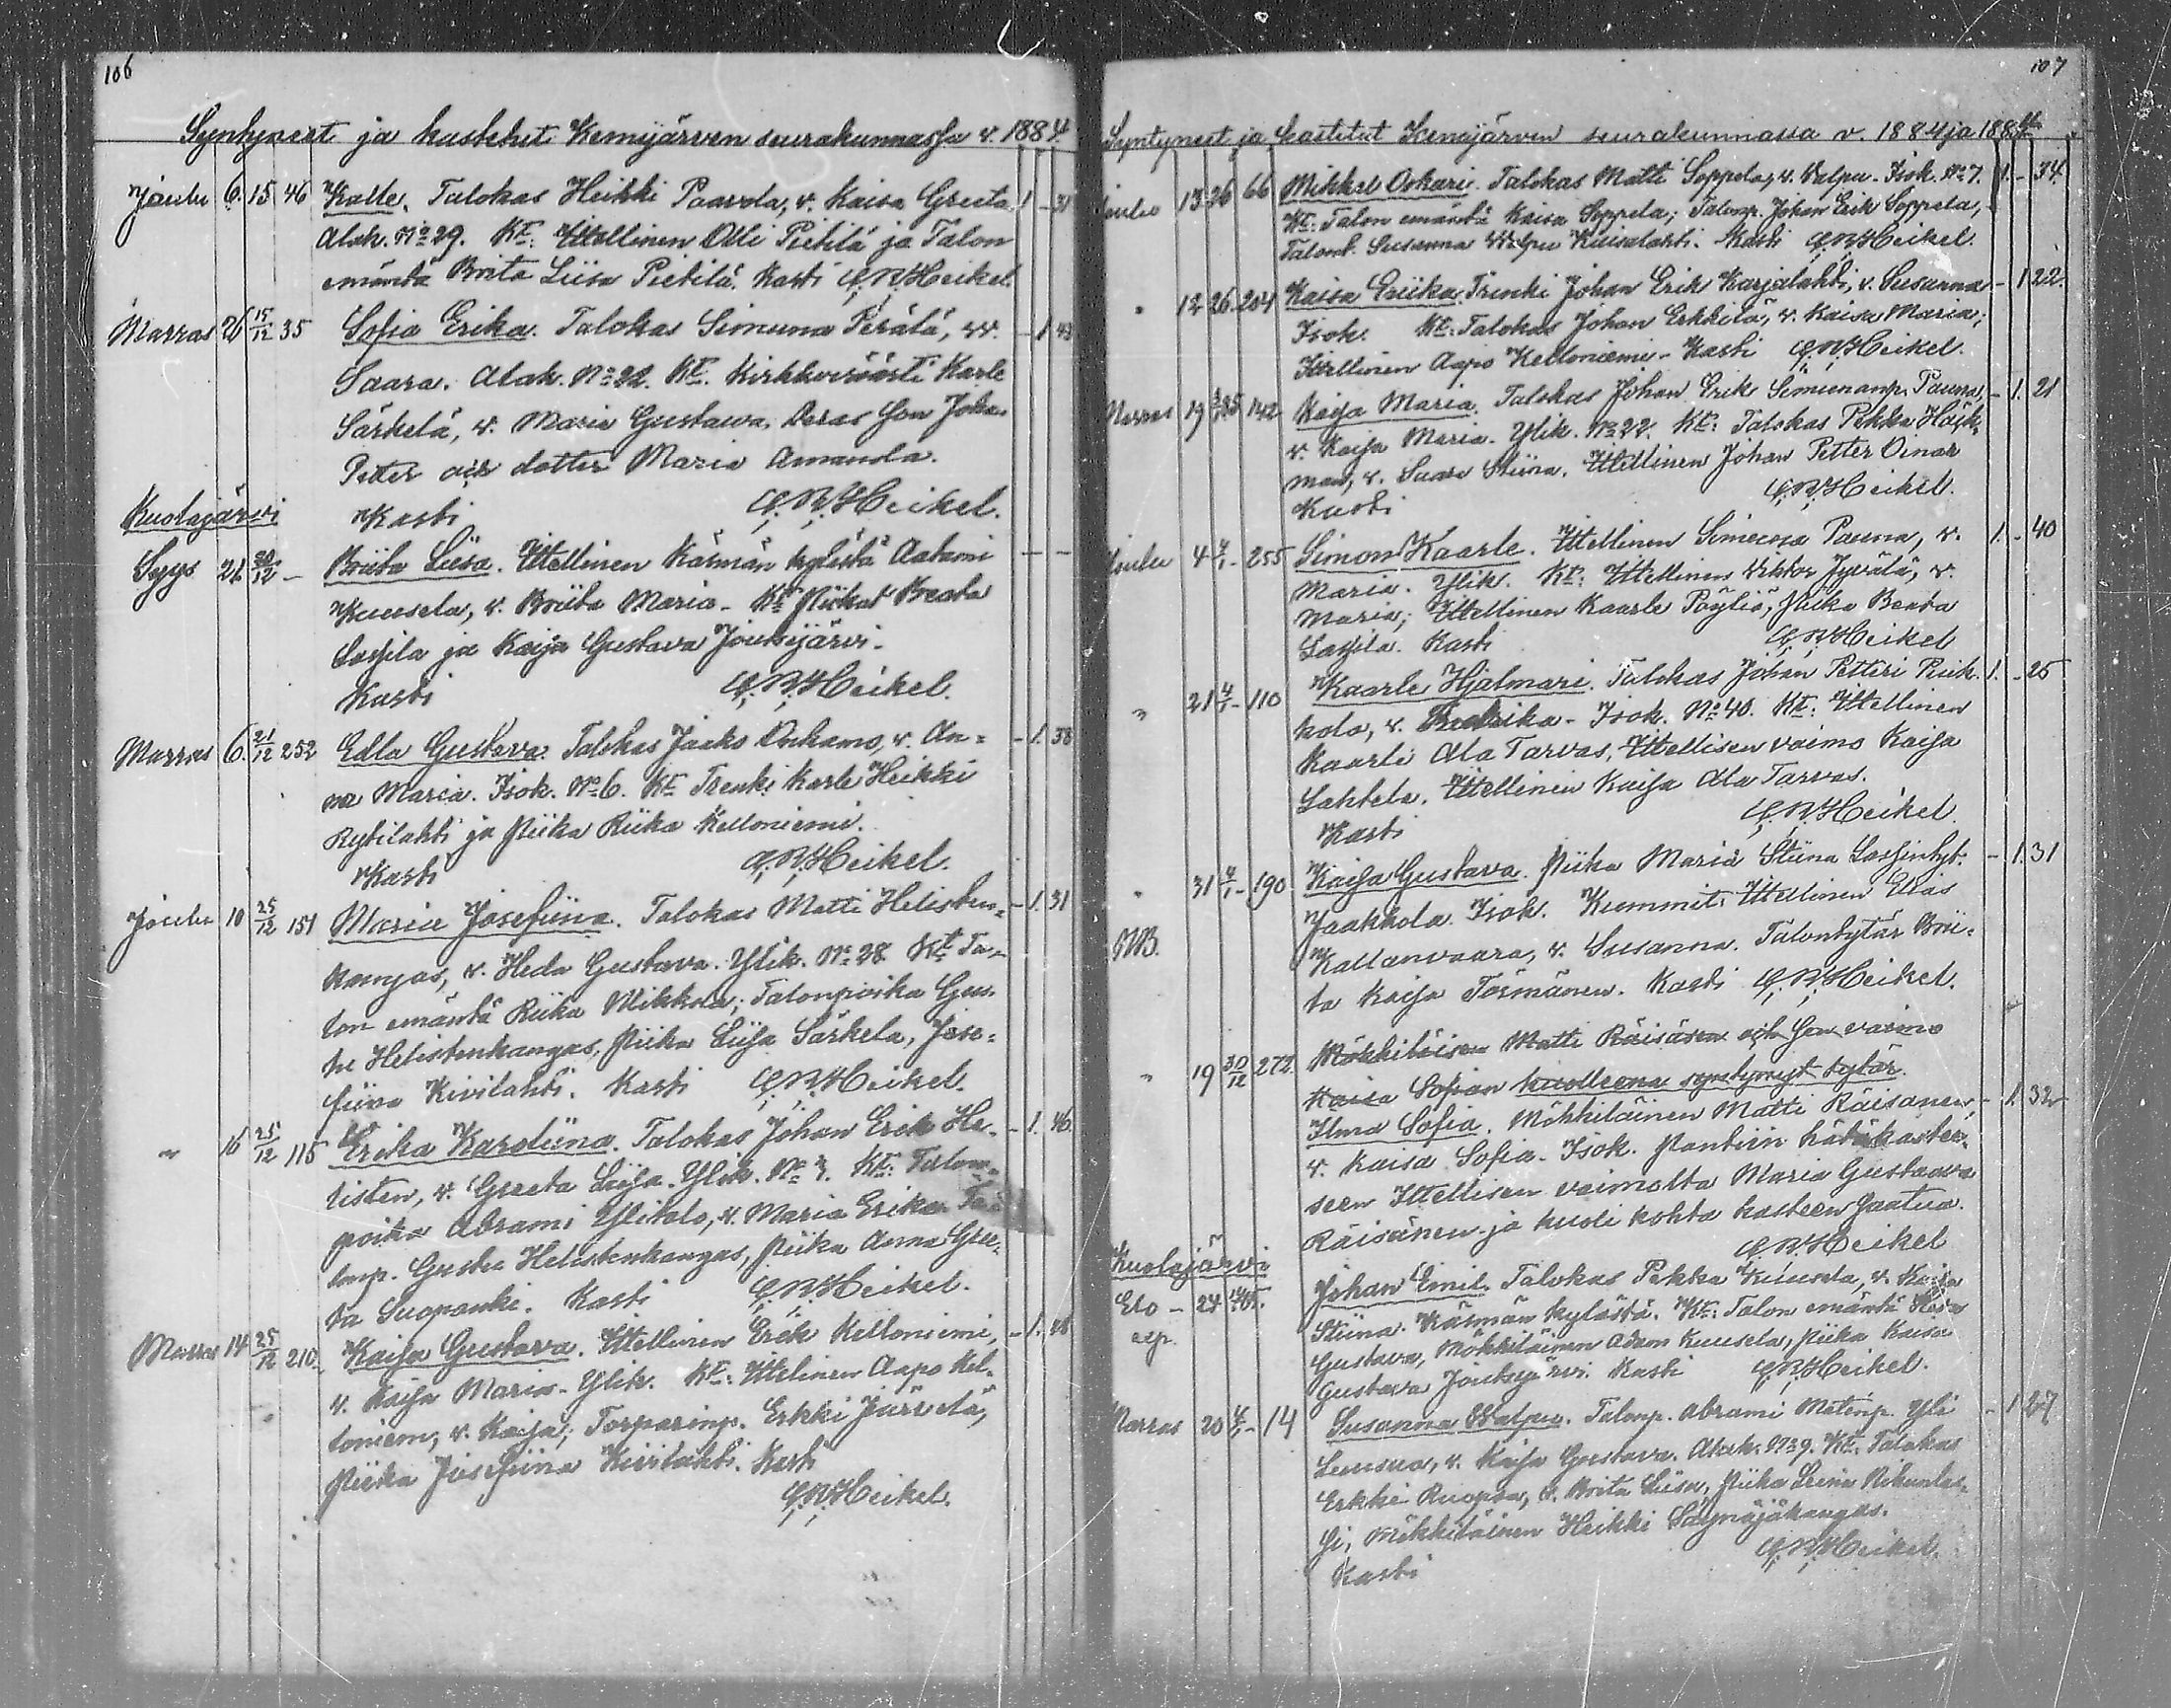 106
Syntyneet ja kastetut Kemijärven seurakunnassa v. 1884.
Joulu 6. 15 46 Kalle. Talokas Heikki Paavola, v. Kaisa Greeta 1 - 31
Alak. No 29. Kt: Ittellinen Olli Pietilä ja Talon
emäntä Brita Liisa Pietilä. Kasti C.R.Heikel.
Marras 26 15/12 35 Sofia Erika. Talokas Simuna Perälä, v. - 1 43
Saara. Alak. No 22. Kt. Kirkkoväärti Karle
Särkelä, v. Maria Gustawa, deras son Johan
Petter och dotter Maria Amanda.
Kasti C.R.Heikel.
Kuolajärvi
Syys 21 20/12 - Briita Liisa. Ittellinen Käsmän kylästä Aatami - -
Kuusela, v. Briita Maria. Kt Piikat Breata
Lassila ja Kaija Gustava Joutsijärvi.
Kasti C.R.Heikel.
Marras 6. 21/12 252 Edla Gustava. Talokas Jaako Onkamo, v. An= - 1. 38
na Maria. Isok. No 6. Kt Trenki Karle Heikki
Rytilahti ja Piika Riika Kelloniemi.
Kasti C.R.Heikel.
Joulu 10 25/12 151 Maria Josefiina. Talokas Matti Helisten= - 1. 31
kangas, v. Heda Gustava. Ylik. No 28 Kt Ta-
lon emäntä Riika Mikkola; Talonpoika Gus-
tu Helistenkangas, Piika Liisa Särkela, Jose=
fiina Kivilahti. Kasti C.R.Heikel.
" 16 25/12 115 Erika Karoliina. Talokas Johan Erik He- - 1. 46
listen, v. Greeta Liisa. Ylik. No 3. Kt: Talon-
poika Abrami Ylitalo, v. Maria Erika. Ta-
lonp. Gustu Helistenkangas, Piika Anna Gree-
ta Suopanki. Kasti C.R.Heikel.
Marras 14 25/12 210 Kaisa Gustava. Ittellinen Erik Kelloniemi, - 1.
v. Kaisa Maria. Ylik. Kt: Ittelinen Aapo Kel-
loniem, v. Kaija; Torparinp. Erkki
Piika Josefiina Kivilahti. Kasti
C.R.Heikel.
107
Syntyneet ja kastetut Kemijärven seurakunnassa v. 1884 ja 1884
Joulu 13 26 66 Mikkel Oskari. Talokas Matti Soppela, v. Valpu. Isok. No 7. 1. - 34
Kt: Talon emäntä Kaisa Soppela; Talonp. Johan Erik Soppela,
Talont. Susanna Walpu Kuisalahti. Kasti C.R.Heikel.
" 12 26 204 Kaisa Eriika. Trenki Johan Erik Karjalahti, v. Susanna - 1 22.
Isok. Kt: Talokas Johan Erkkilä, v. Kaisa Maria;
Ittellinen Aapo Kelloniemi. Kasti C.R.Heikel.
Marras 19 142 Kaisa Maria. Talokas Johan Erik Simunanp. Pauna, - 1. 21
v. Kaija Maria. Ylik. No 22. Kt: Talokas Pekka Hack-
man, v. Saara Stiina. Ittellinen Johan Petter Oinas
Kasti C.R.Heikel.
Joulu 4 4/1 - 255 Simon Kaarle. Ittellinen Simuna Pauna, v. 1. - 40
Maria. Ylik. Kt: Ittellinen Viktor Jyvälä, v.
Maria; Ittellinen Kaarle Pöyliö, Piika Beata
Lassila. Kasti C.R.Heikel
" 21 4/1 - 110 Kaarle Hjalmari. Talokas Johan Petteri Puik- 1. - 25
kola, v. Fredrika. Isok. No 40. Kt: Ittellinen
Kaarle Ala Tarvas, Ittellisen vaimo Kaisa
Lahtela. Ittellinen Kaisa Ala Tarvas.
Kasti C.R.Heikel.
" 31 4/1 - 190 Kaisa Gustava. Piika Maria Stiina Lassintyt. - 1. 31
NB. Jaakkola. Isok. Kummit: Ittellinen Elias
Kallanvaara, v. Susanna. Talontytär Brii-
ta Kaija Törmänen. Kasti C.R.Heikel.
" 19 30/12 272 Mökkiläisen Matti Räisäsen och hans vaimo
Kaisa Sofian kuolleena syntynyt tytär.
Ilma Sofia. Mökkiläinen Matti Räisanen, - 1. 32
v. Kaisa Sofia. Isok. Pantiin hätäkastee-
seen Ittellisen vaimolta Maria Gustaava
Räisänen ja kuoli kohta kasteen saatua.
C.R.Heikel
Kuolajärvi
Elo - 24 Johan Emil. Talokas Pekka Kuusela, v. Kaisa
Stiina. Käsmän kylästä. Kt: Talon emäntä Heda
Gustava, Mökkiläinen Adam Kuusela, Piika Kaisa
Gustava Joutsijärvi. Kasti C.R.Heikel.
Marras 20 4/1 - 14 Susanna Walpu. Talonp. Abrami Matinp. Yli - 1 27
Luusua, v. Kaisa Gustava. Alak. No 9. Kt: Talokas
Erkki Ruopsa, v. Brita Liisa, Piika Leena
Mökkiläinen Heikki Säynäjäkangas.
Kasti C.R.Heikel.